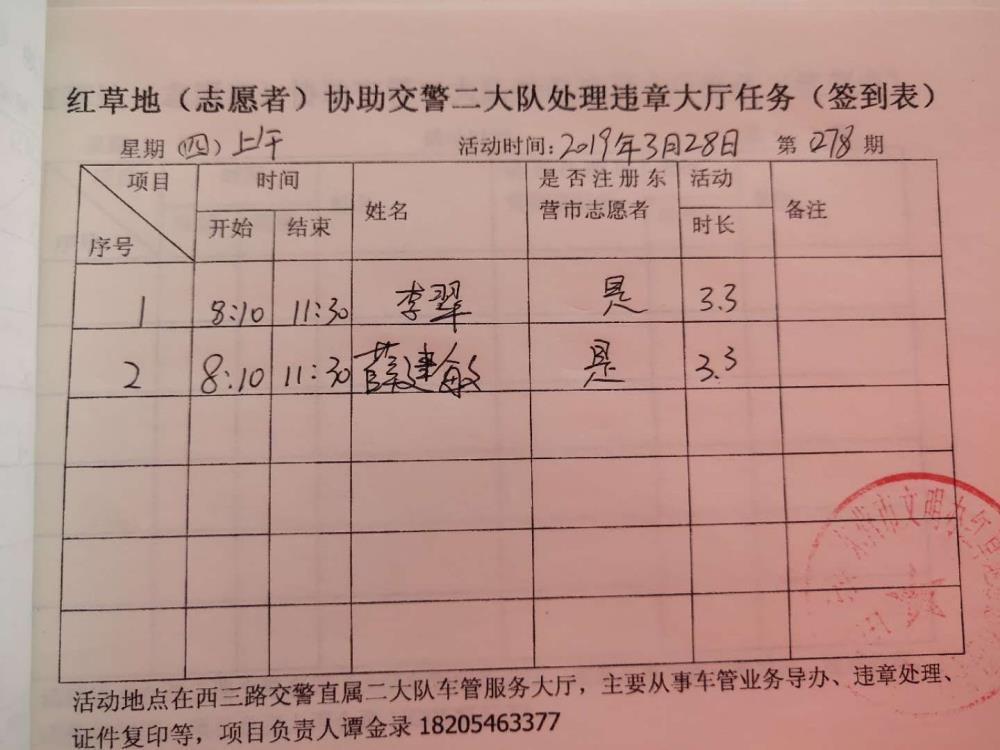 红草地（志愿者）协助交警二大队处理违章大厅任务（签到表）
星期（四）上午 活动时间：2019年3月28日 第 278 期
项目 时间 姓名 是否注册东营市志愿者 活动时长 备注
序号 开始 结束
1 8:10 11:30 李翠 是 3.3
2 8:10 11:30 薛建敏 是 3.3
活动地点在西三路交警直属二大队车管服务大厅，主要从事车管业务导办、违章处理、
证件复印等，项目负责人谭金录 18205463377